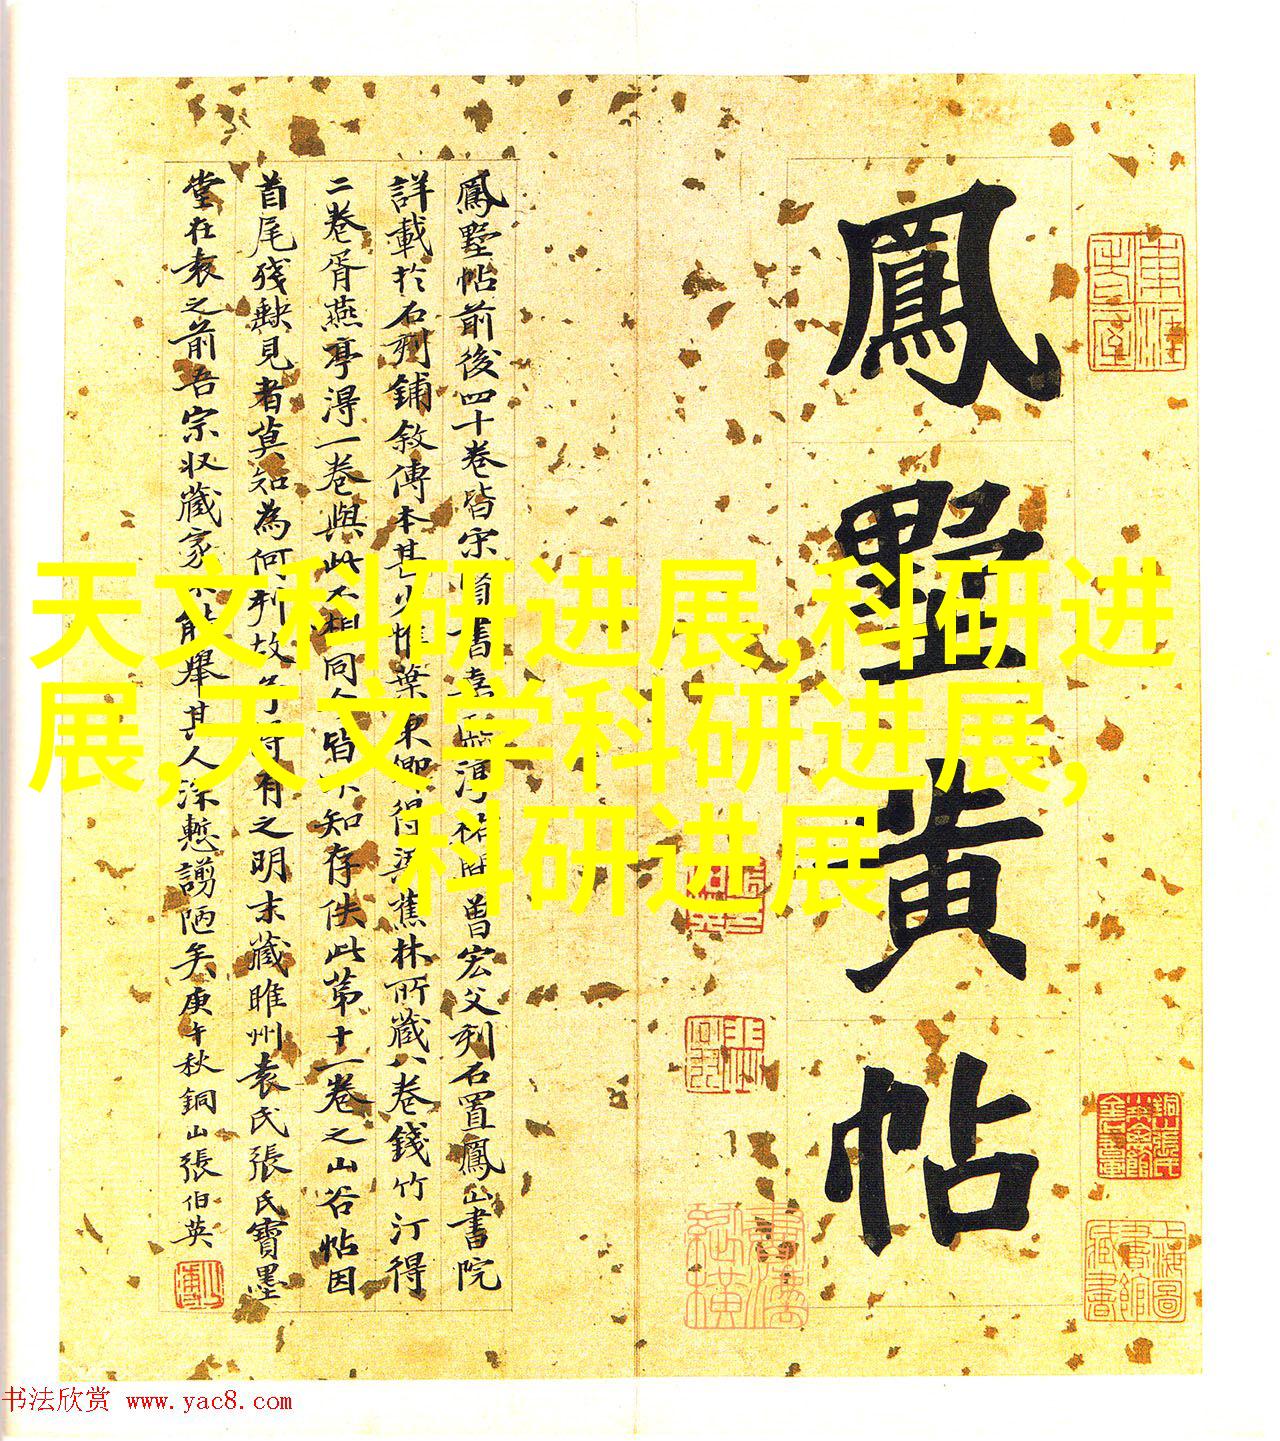 鳳墅黄帖
鳳墅帖前後四十卷皆宋賢書嘉熙淳祐間曾宏父刻石置鳳山書院
詳載於石刻鋪敘傳本甚少惟葉東卿得馮蕉林所藏八卷錢竹汀得
二卷胥燕亭得一卷與此不相同今皆不知存佚此第十一卷之山谷帖因
首尾殘缺見者莫知為何刻故得有之明末藏睢州袁氏張氏寶墨
堂在袁之前吾宗収藏家不能舉其人深慙謭陋矣庚午秋銅山張伯英
天文科研进展,科研进
展,天文学科研进展,
科研进展
上海圖書館藏書
书法欣赏 www.yac8.com